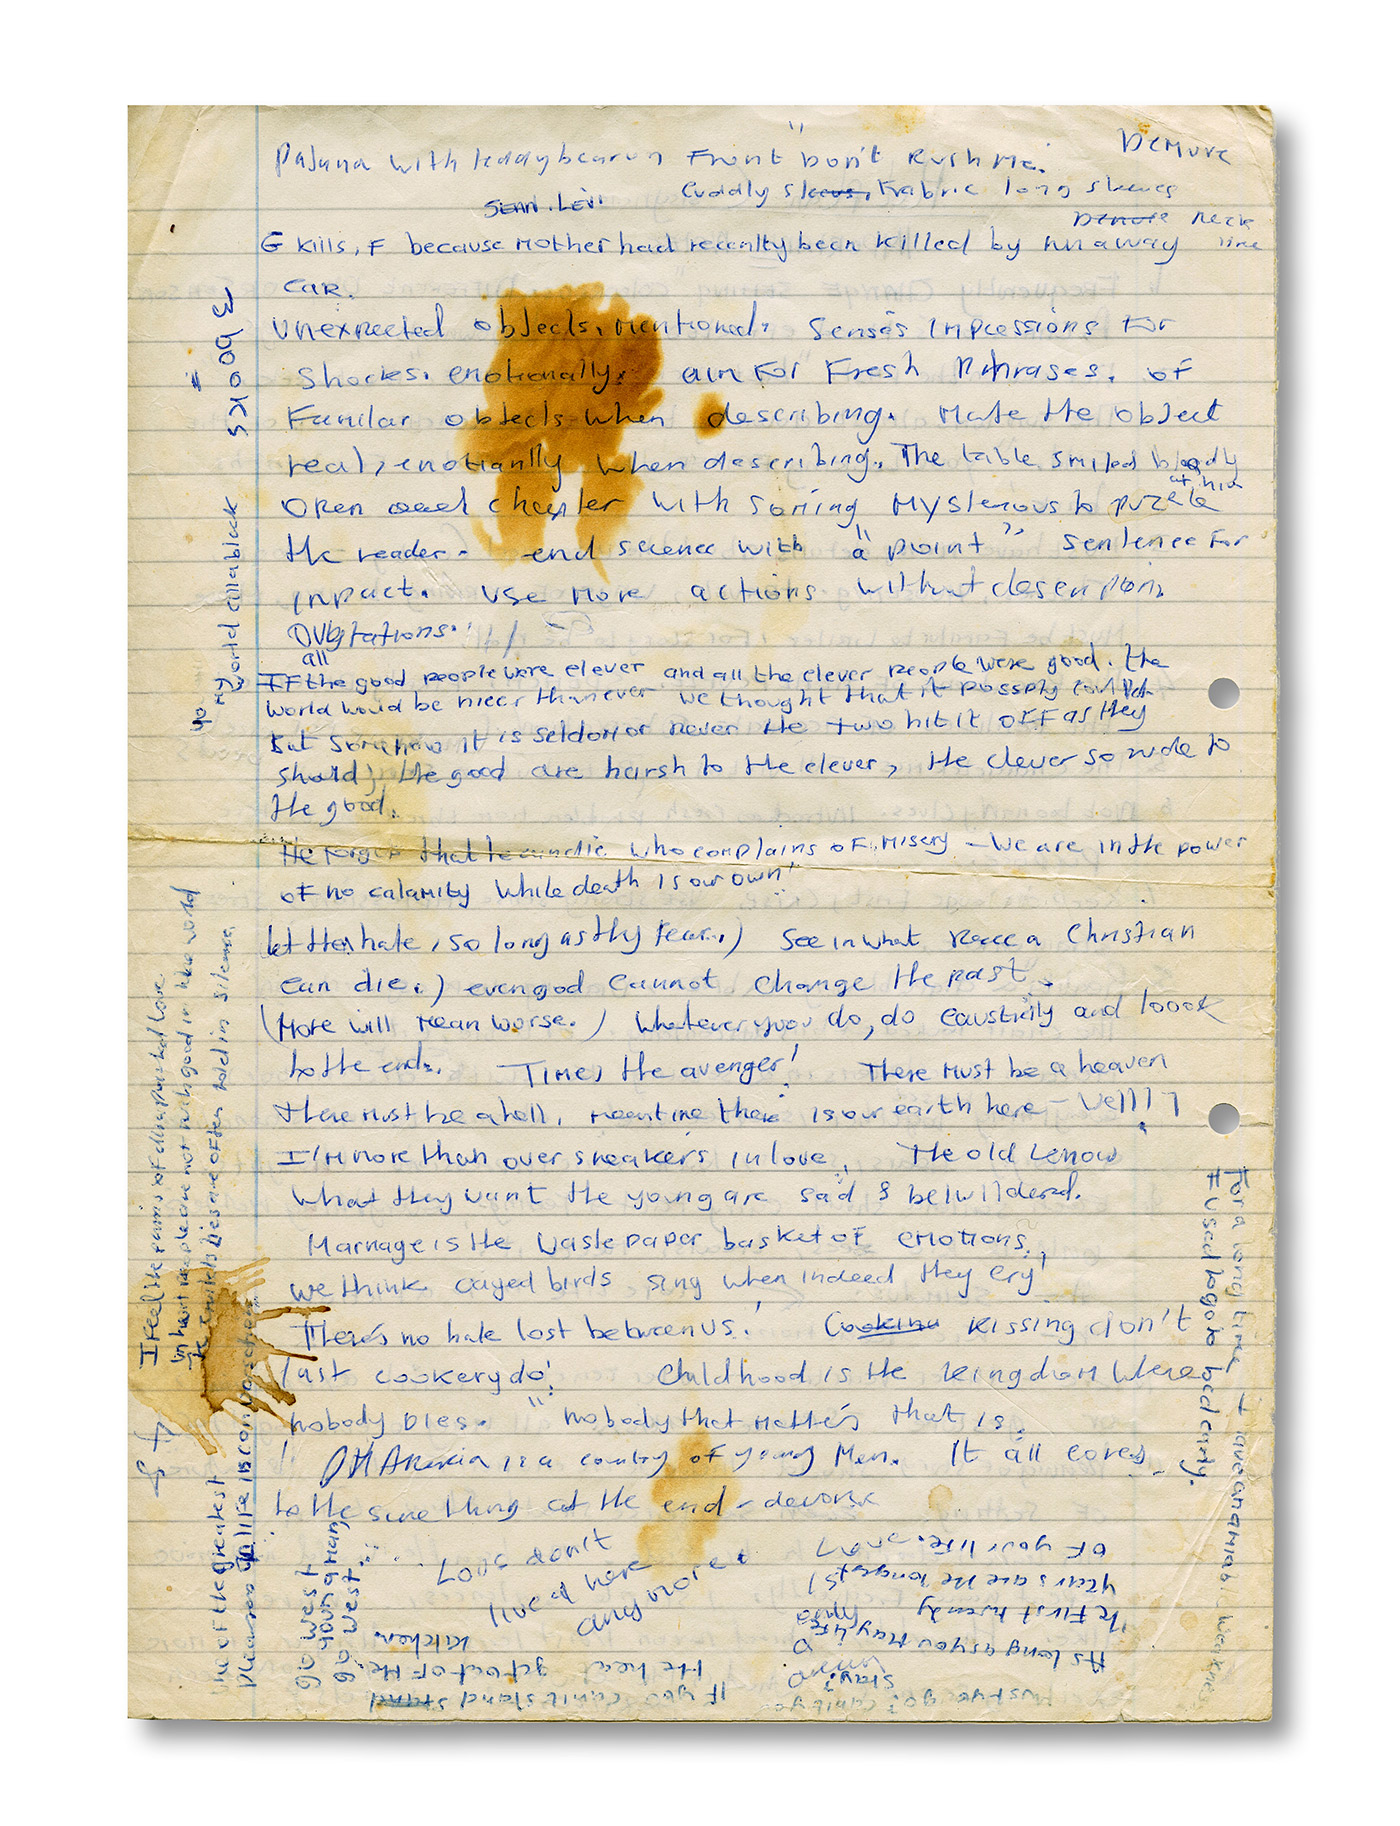 Demure
Pajana with teddybear on Front "Don't Rush Me.
Cuddly Fabric long sleeves
Sean. Levi
Demure neck
line
G kills, F because Mother had recenlty been killed by runaway
car.
unexpected objects, mentioned, senses impressions for
Shocks. emotionally. aim For Fresh Phrases. of
Familar objects when describing. Make the object
real, emotianlly when describing. The table smiled
at him
Open chapter with soming Mysterous to puzzle
the reader. end scence with "a point" sentence For
inpact. use More actions without
all
IF the good people were clever and all the clever people were good. the
world would be nicer than ever we thought that it
But somehow it is seldom or never the two hit it off as they
should, the good are harsh to the clever, the clever so rude to
the good.
who complains of Misery - we are in the power
of no calamity while death is our own"
let them hate, so long as they fear.) See in what a Christian
can die.) even god cannot change the past.
(More will mean worse.) Whatever you do, do and look
to the end. Times the avenger! There must be a heaven
there must be a hell, meantime there is our earth here - Well!
I'm more than over sneakers in love, The old know
what they want the young are sad & bewildered.
Marriage is the waste paper basket of emotions.,
we think caged birds sing when indeed they cry!
There's no hate lost between us! Cooking Kissing don't
last cookery do! Childhood is the kingdom where
nobody Dies. "nobody that matters that is.
is a country of young Men. It all comes
to the same thing at the end -
Love don't
live here
anymore
go west
young man
go west"
3 books
My world
I Feel the pains of
told in silence
one of the greatest
pleasures in life is conversation
For a long time I
I used to go to bed early.
As long as you may live
The First twenty
years are the longest
of your life.
If you can't stand
the heat get out of the
kitchen.
Must you go? can't you
stay?